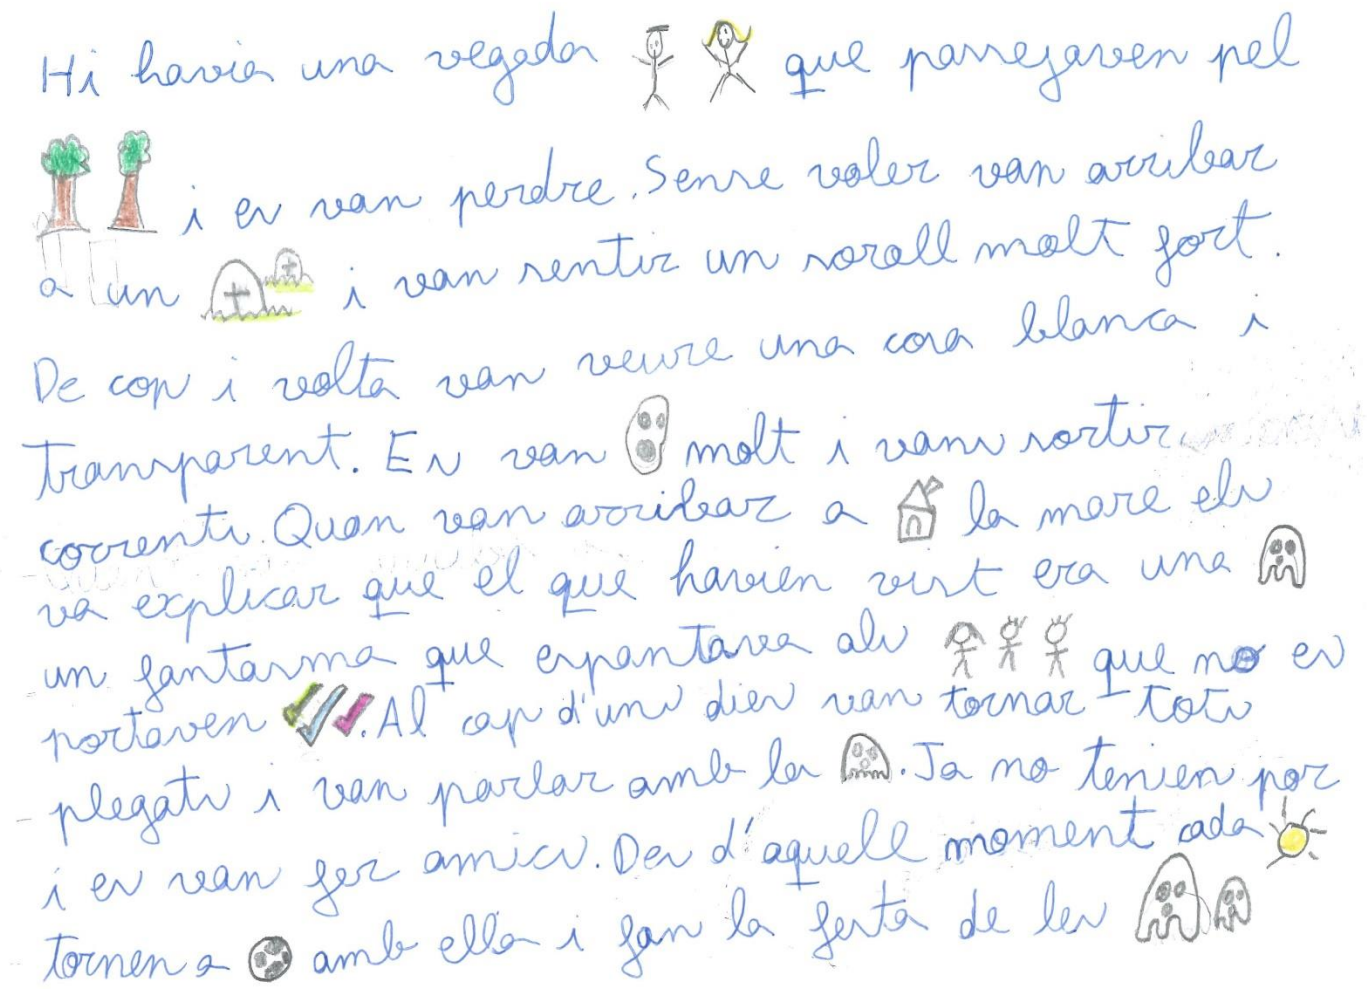 Hi havia una vegada que passejaven pel
i es van perdre. Sense voler van arribar
a un i van sentir un soroll molt fort.
De cop i volta van veure una cosa blanca i
transparent. Es van molt i vans sortir
corrents. Quan van arribar a la mare els
va explicar que el que havien vist era una
un fantasma que espantava als que no es
portaven . Al cap d'uns dies van tornar tots
plegats i van parlar amb la . Ja no tenien por
i es van fer amics. Des d'aquell moment cada
tornen a amb ella i fan la festa de les